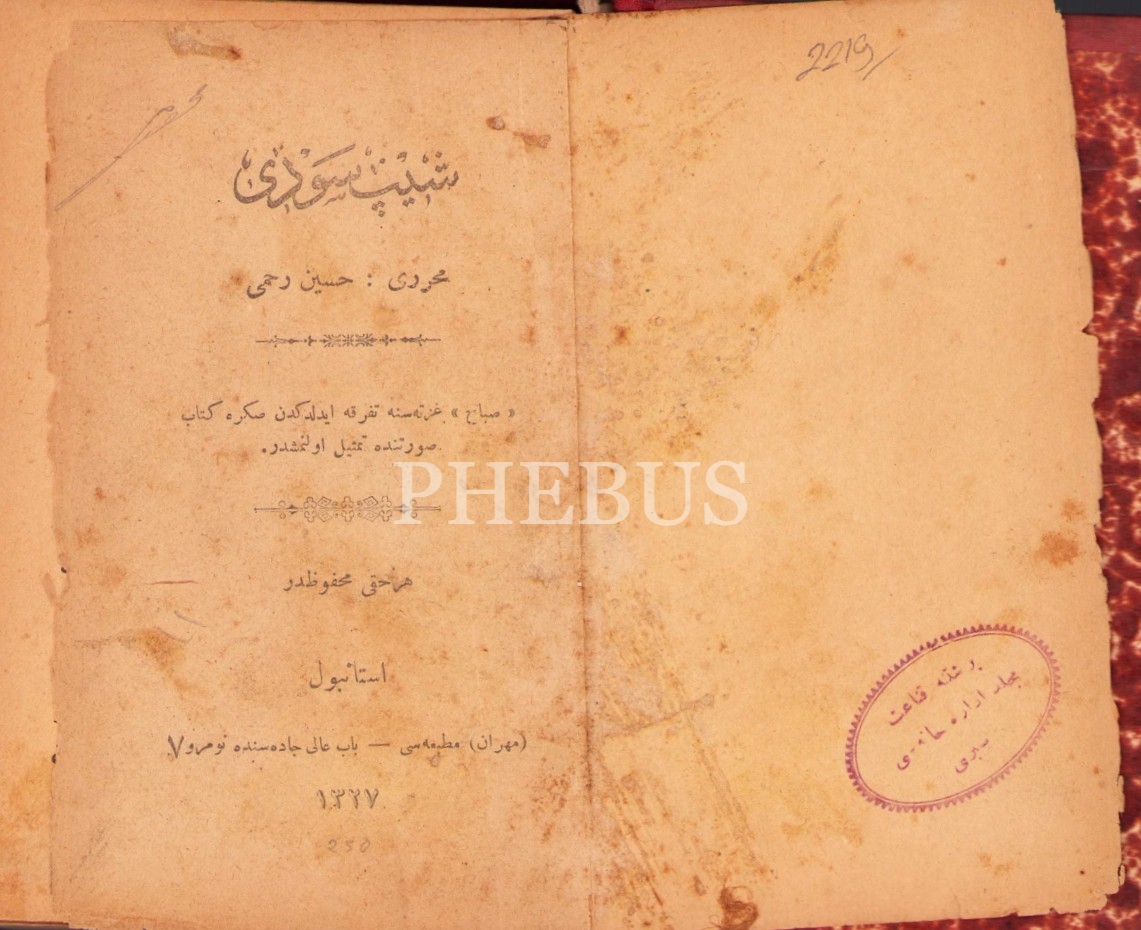 2219
شیپ سَودی
محرری : حسین رحمی
« صباح » غزته‌سنه تفرقه ایدلدکدن صکره کتاب
صورتنده تمثیل اولنمشدر.
PHEBUS
هر حقی محفوظدر
استانبول
(مهران) مطبعه‌سی — باب عالی جاده‌سنده نومرو ٧
١٣٢٧
250
قناعت
مجلد اداره‌خانه‌سی